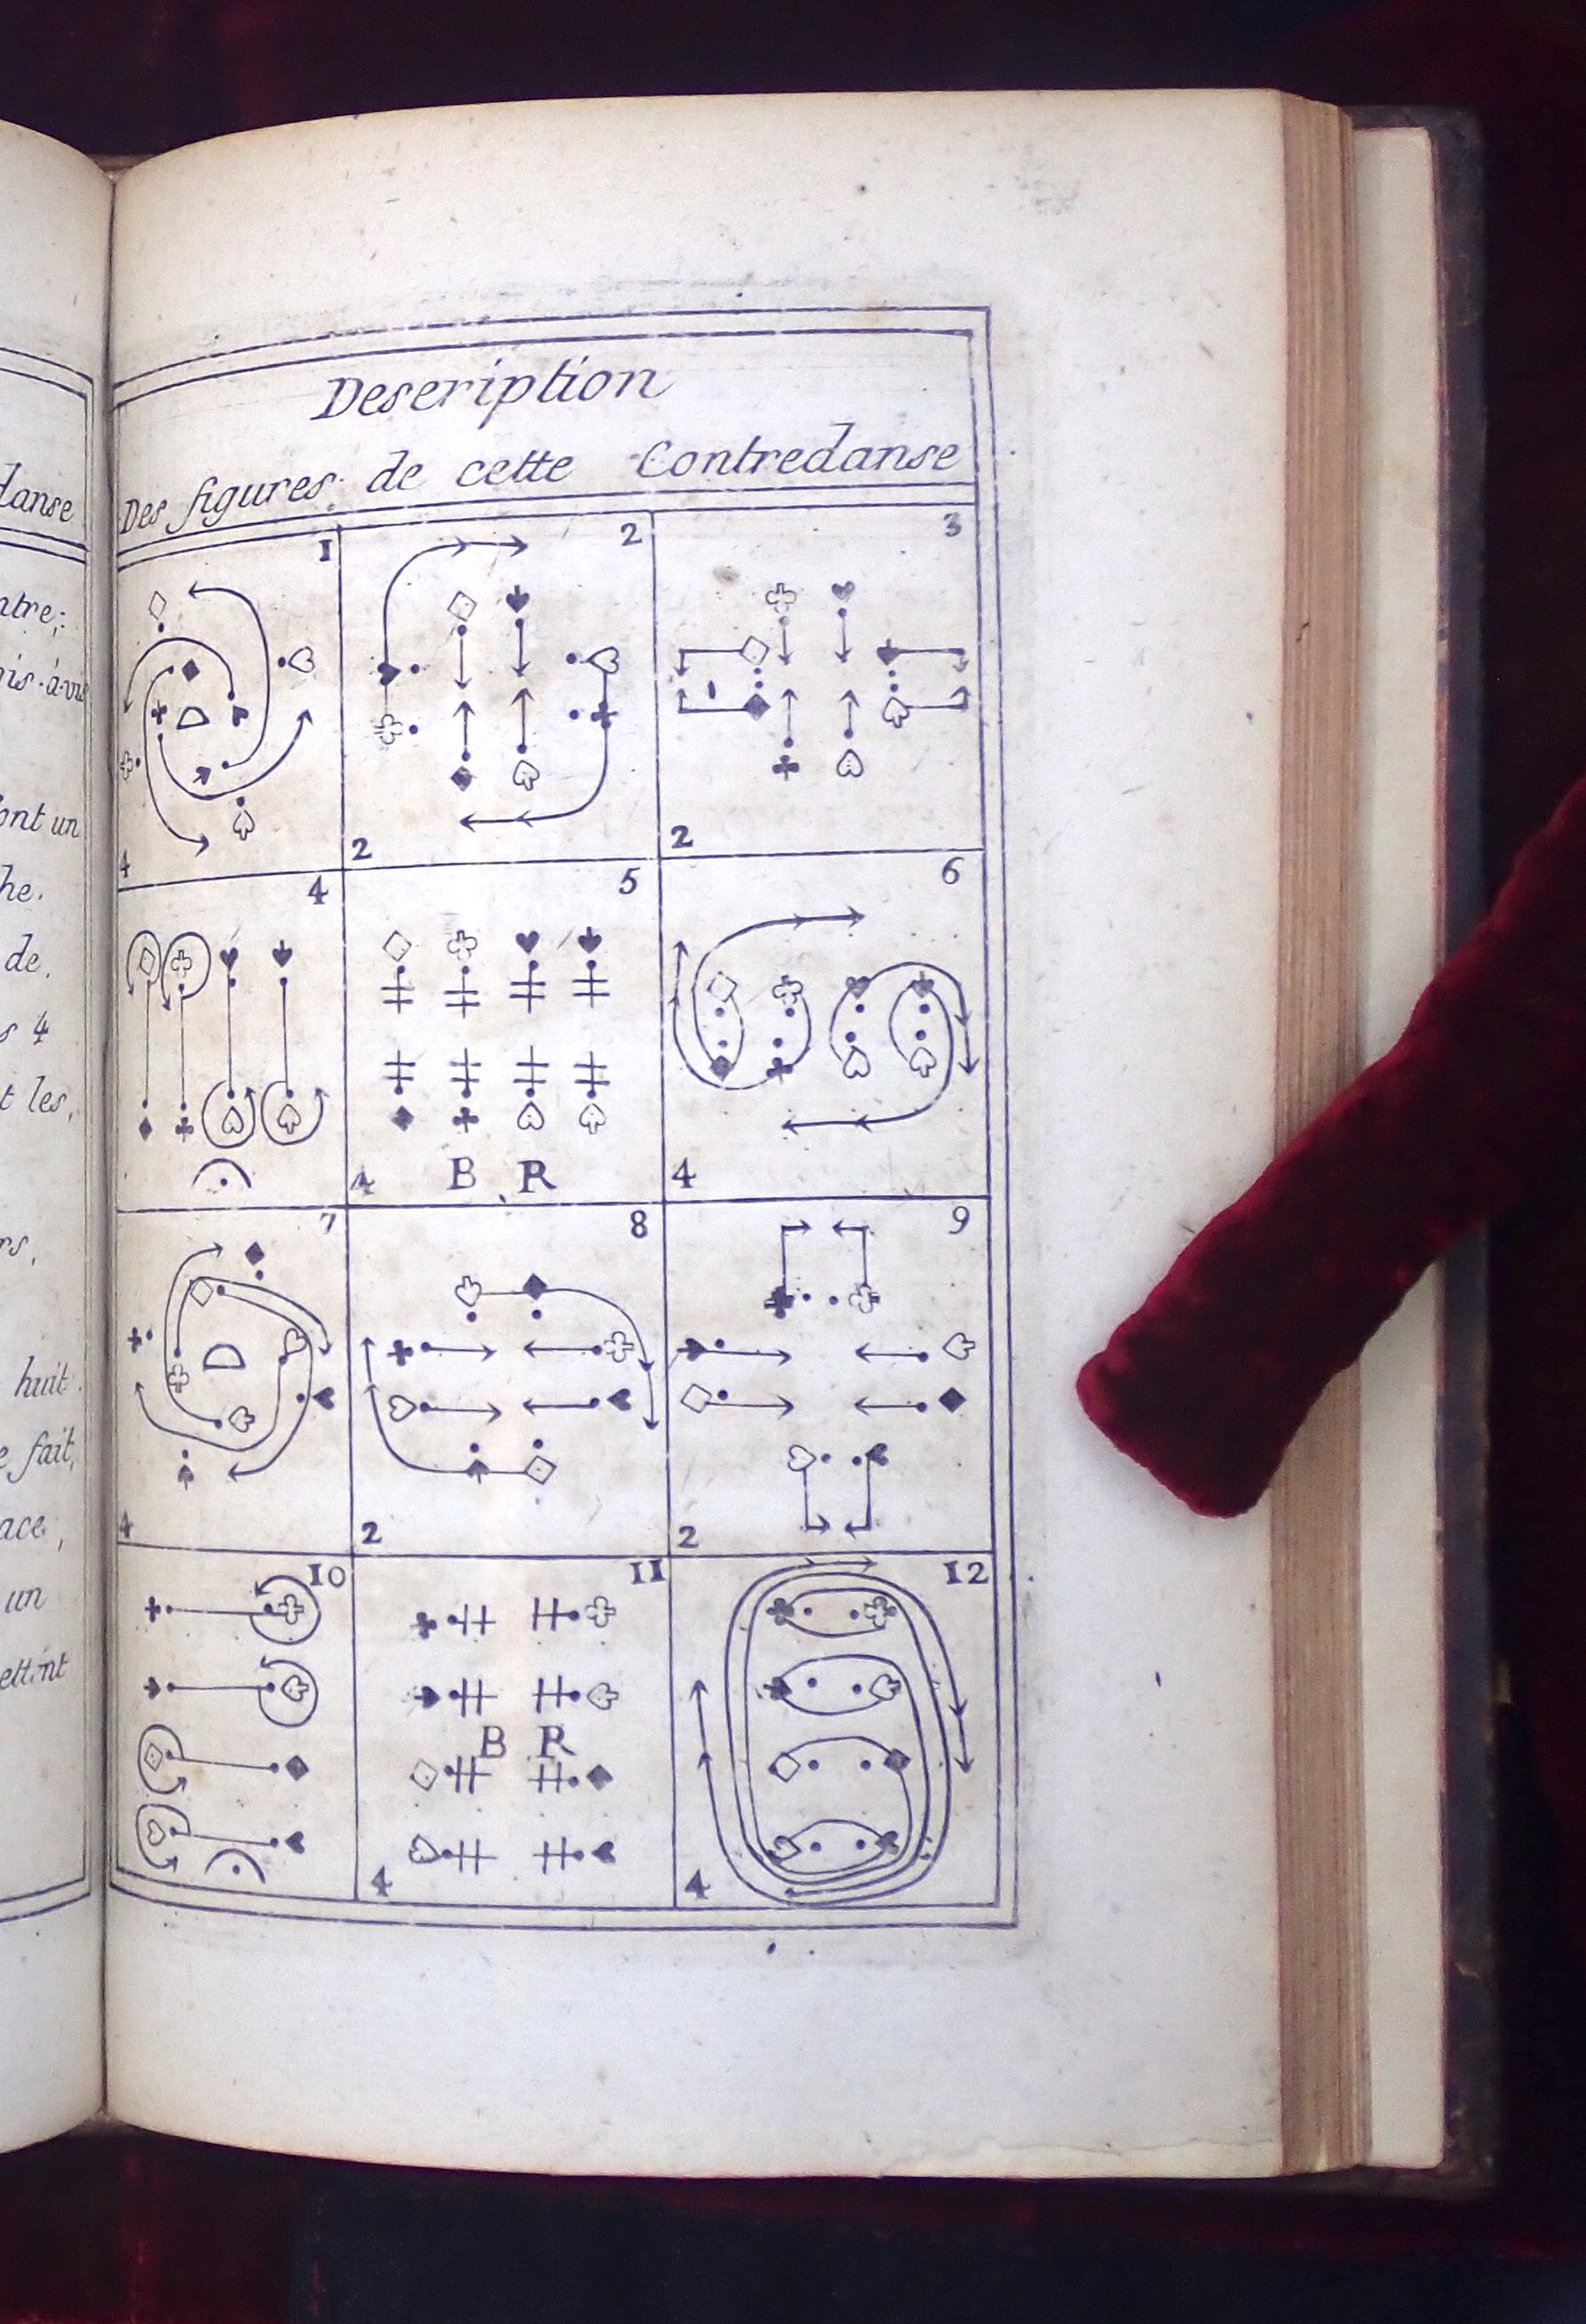 danse
ntre;
ont un
he.
de,
s 4
t les,
rs,
huit
e fait,
ace,
un
Deseription
Des figures de cette Contredanse
1
D
4
2
2
3
2
4
5
4 B R
6
4
7
D
4
8
2
9
2
10
11
B R
4
12
4